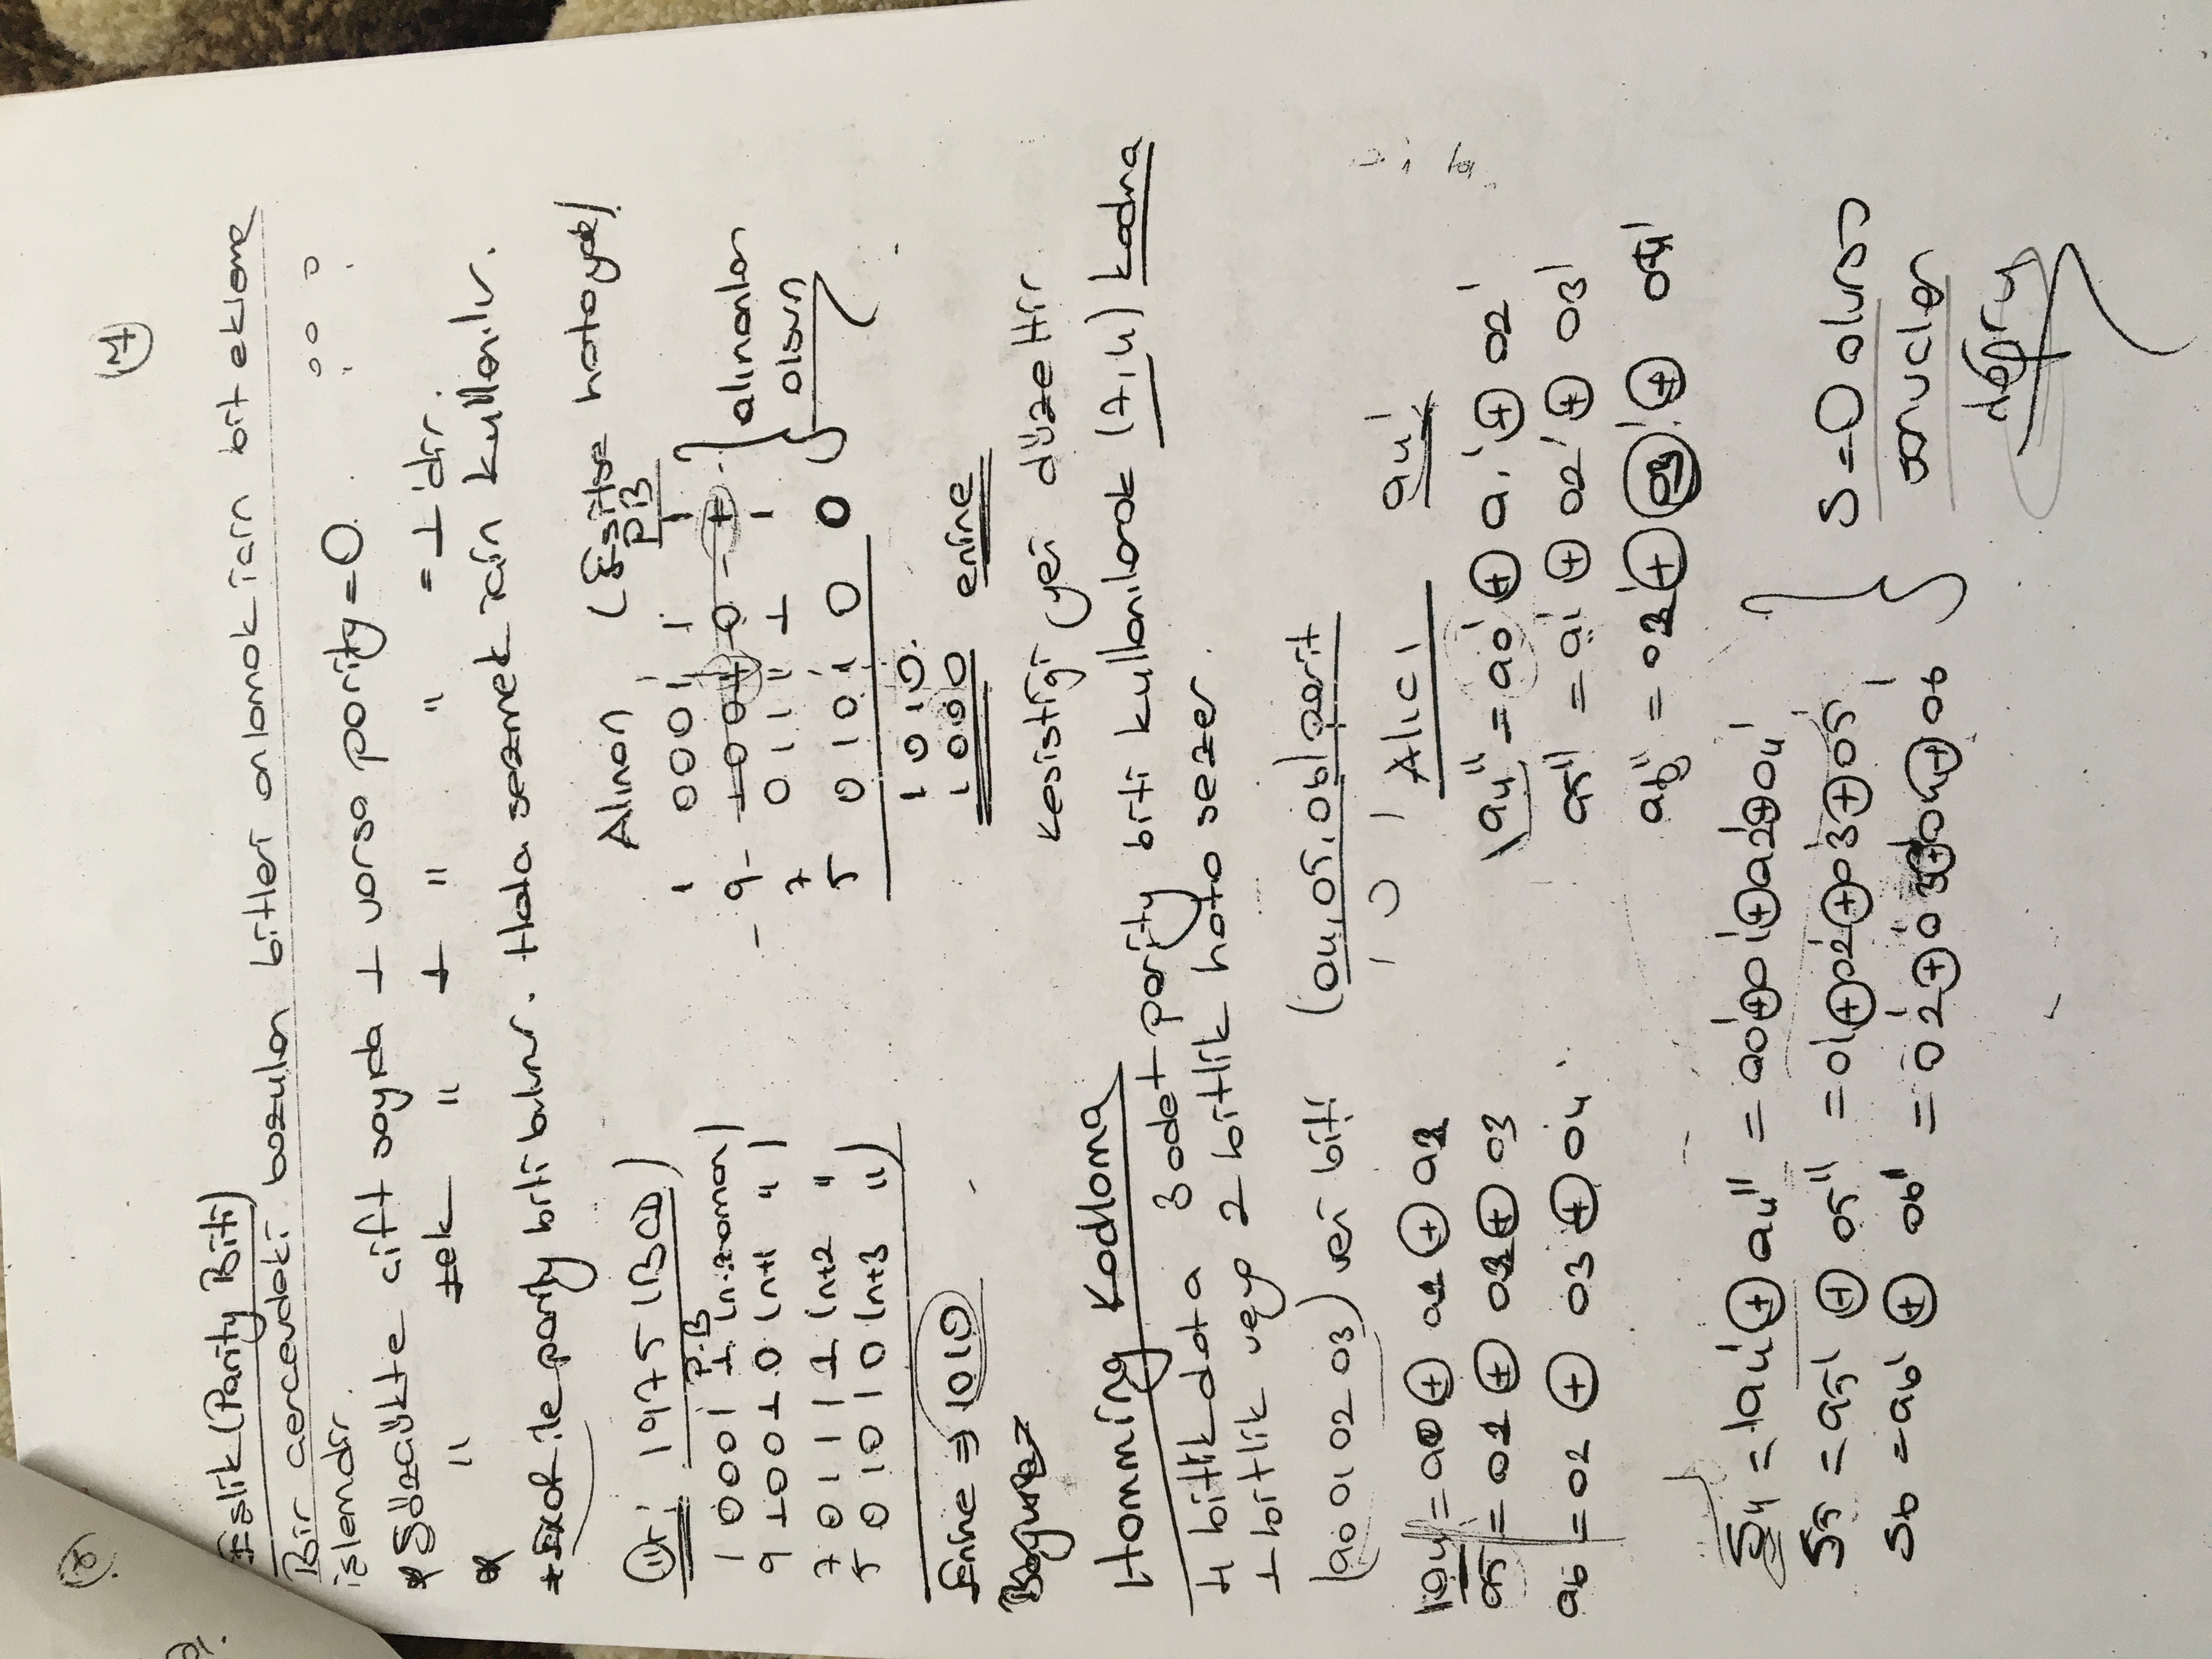 (7)
Eşlik (Parity Biti)
Bir cercevdeki bozulan bitleri onlamak icin bit ekleme
işlemdir.
* Sözcükte cift sayıda 1 varsa parity = 0.
* " tek " 1 " " = 1'dir.
* Exor ile parity biti bulunur. Hata sezmek icin kullanılır.
Ör: 1975 (BCD)
P.B
1 0001 1 (n. zaman)
9 1001 0 (n+1 ")
7 0111 1 (n+2 "
5 0101 0 (n+3 ")
Enine ⇒ 1010
Alınan (Eşitse hata yok)
PB
1 0001 1 1
9 1001 0 1
7 0111 1 1
5 0101 0 0
alınanlar
olsun
1010
1000 enine
kesistigi yeri düzelttir
Hamming Kodlama
4 bitlik data 3 adet parity biti kullanılarak (7,4) kodna
1 bitlik veya 2 bitlik hata sezer.
(a0 a1 a2 a3) veri biti (a4, a5, a6) parit
1 0 1
a4 = a0 ⊕ a1 ⊕ a2
a5 = a1 ⊕ a2 ⊕ a3
a6 = a2 ⊕ a3 ⊕ a4
Alıcı a4'
a4'' = a0' ⊕ a1' ⊕ a2'
a5'' = a1' ⊕ a2' ⊕ a3'
a6'' = a2' ⊕ a3' ⊕ a4'
S4 = a4' ⊕ a4'' = a0' ⊕ a1' ⊕ a2' ⊕ a4'
S5 = a5' ⊕ a5'' = a1' ⊕ a2' ⊕ a3' ⊕ a5'
S6 = a6' ⊕ a6'' = a2' ⊕ a3' ⊕ a4' ⊕ a6'
S=0 olursa
sonuclar
doğru